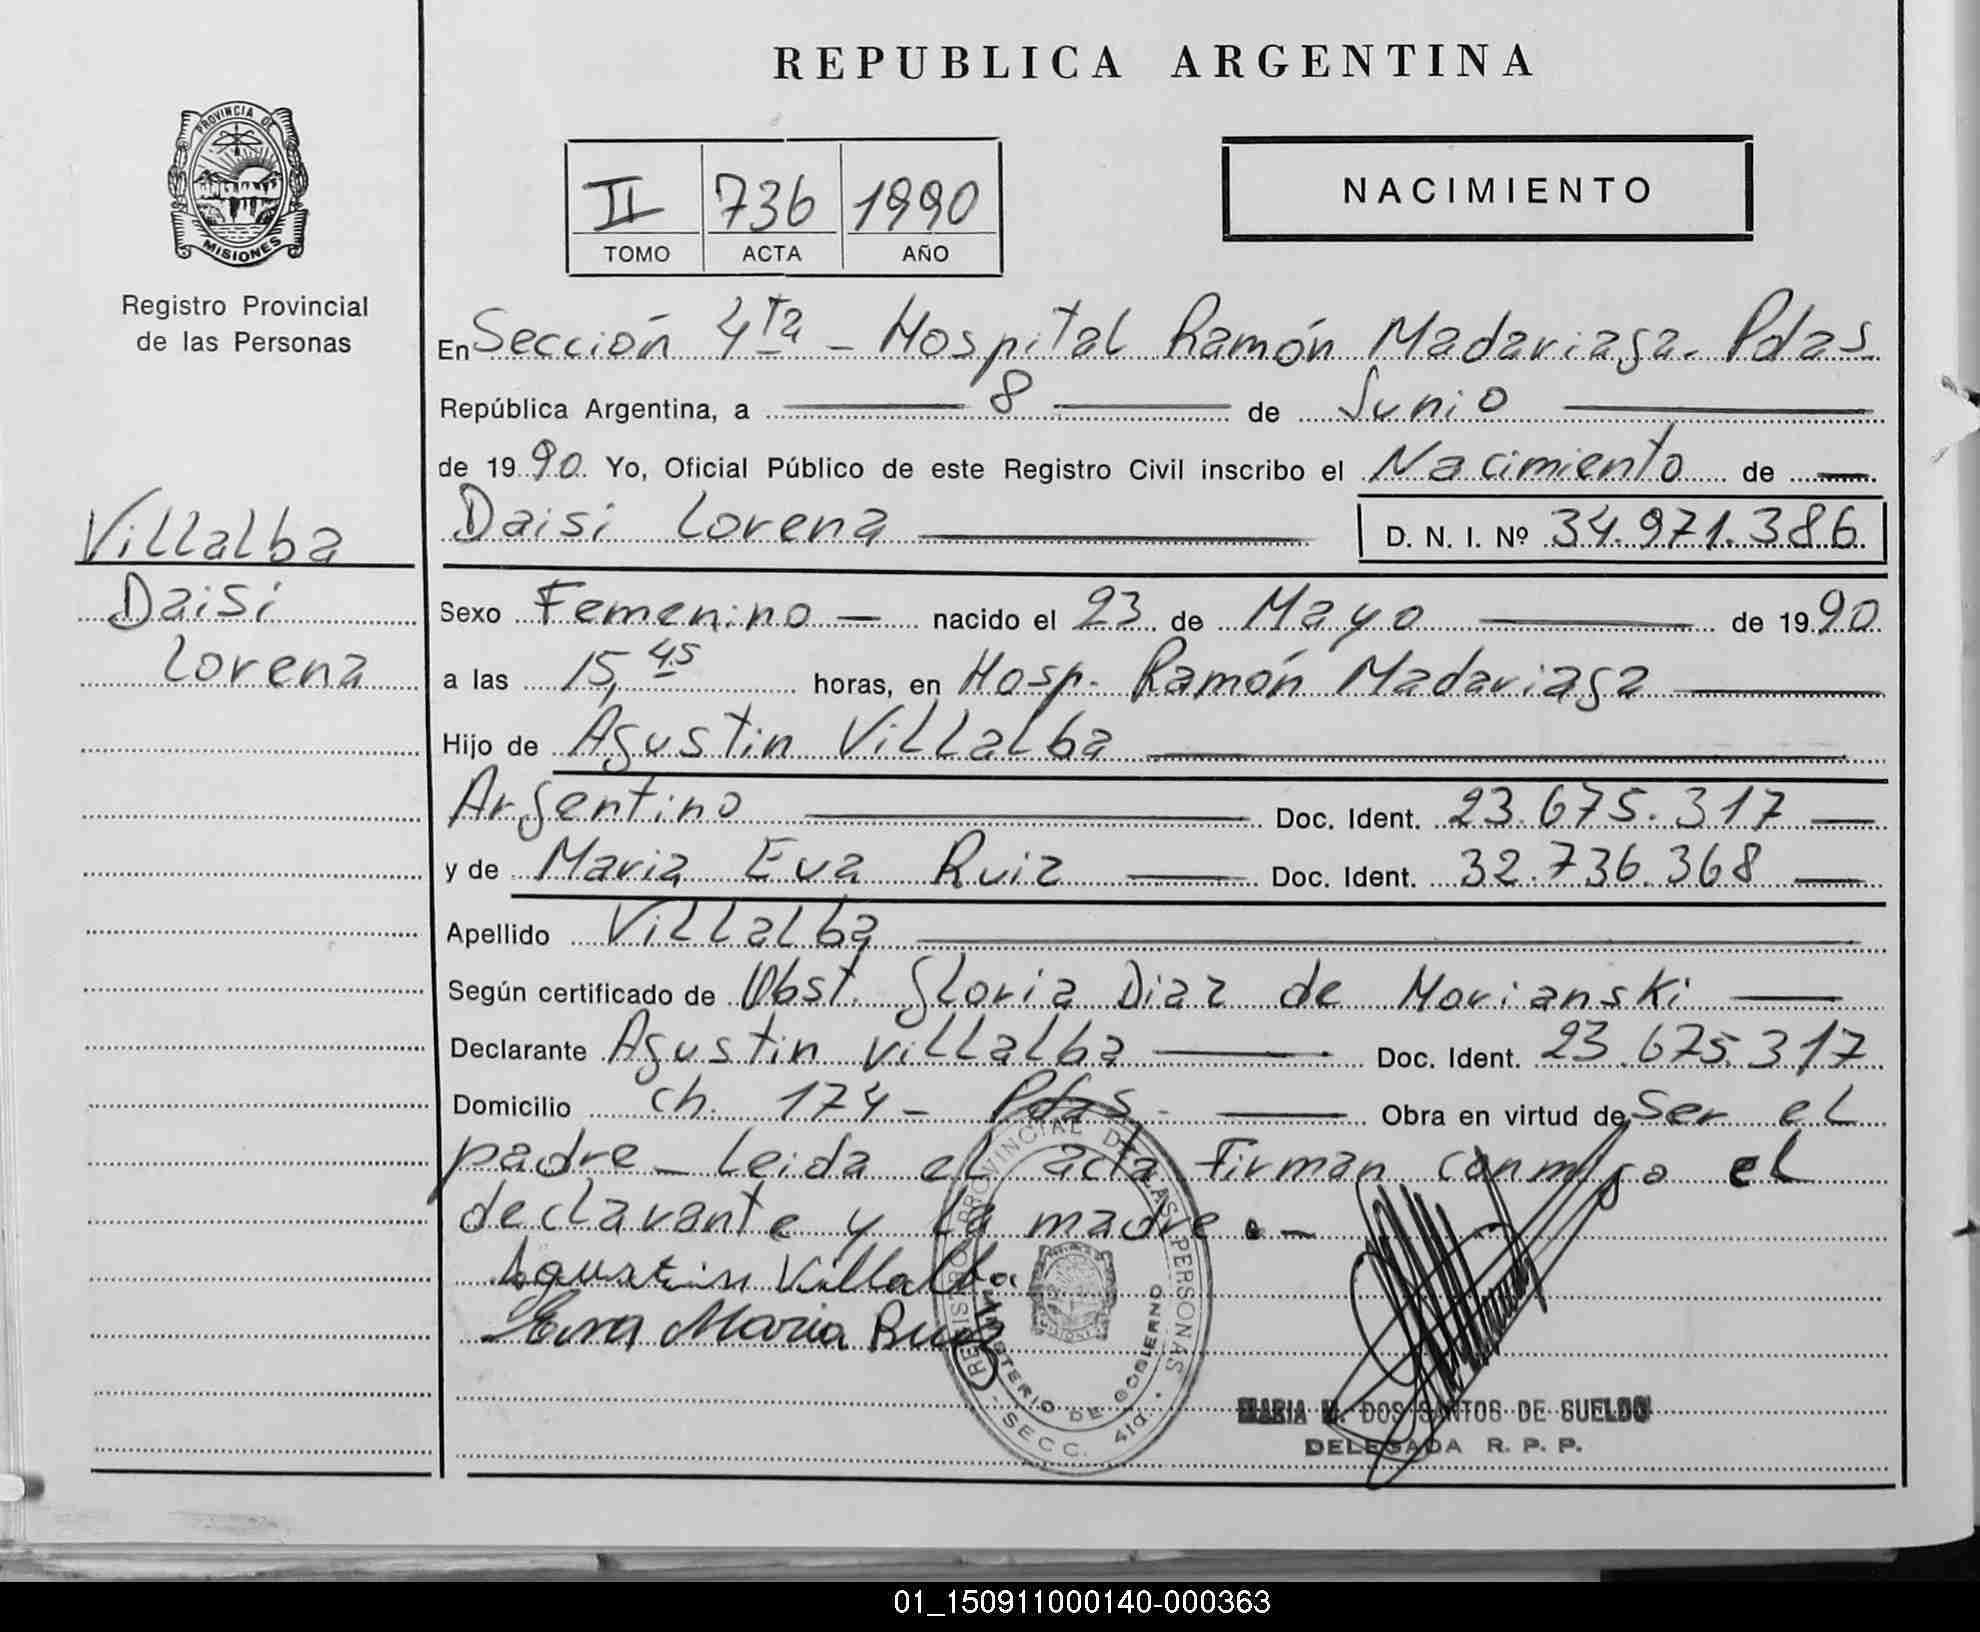 REPUBLICA ARGENTINA
PROVINCIA DE
MISIONES
Registro Provincial
de las Personas
II 736 1990
TOMO ACTA AÑO
NACIMIENTO
En Sección 4ta - Hospital Ramón Madariaga. Pdas
República Argentina, a 8 de Junio
de 1990 Yo, Oficial Público de este Registro Civil inscribo el Nacimiento de
Villalba
Daisi
Lorena
Daisi Lorena D. N. I. Nº 34.971.386
Sexo Femenino nacido el 23 de Mayo de 1990
a las 15,45 horas, en Hosp. Ramón Madariaga
Hijo de Agustin Villalba
Argentino Doc. Ident. 23.675.317
y de Maria Eva Ruiz Doc. Ident. 32.736.368
Apellido Villalba
Según certificado de Obst. Gloria Diaz de Morianski
Declarante Agustin Villalba Doc. Ident. 23.675.317
Domicilio Ch. 174 - Pdas - Obra en virtud de Ser el
padre - Leida el acta Firman conmigo el
declarante y la madre . -
Agustin Villalba
Eva Maria Ruiz
REGISTRO PROVINCIAL DE LAS PERSONAS
MINISTERIO DE GOBIERNO
MISIONES
- SECC. 4ta. -
MARIA M. DOS SANTOS DE SUELDO
DELEGADA R. P. P.
01_150911000140-000363